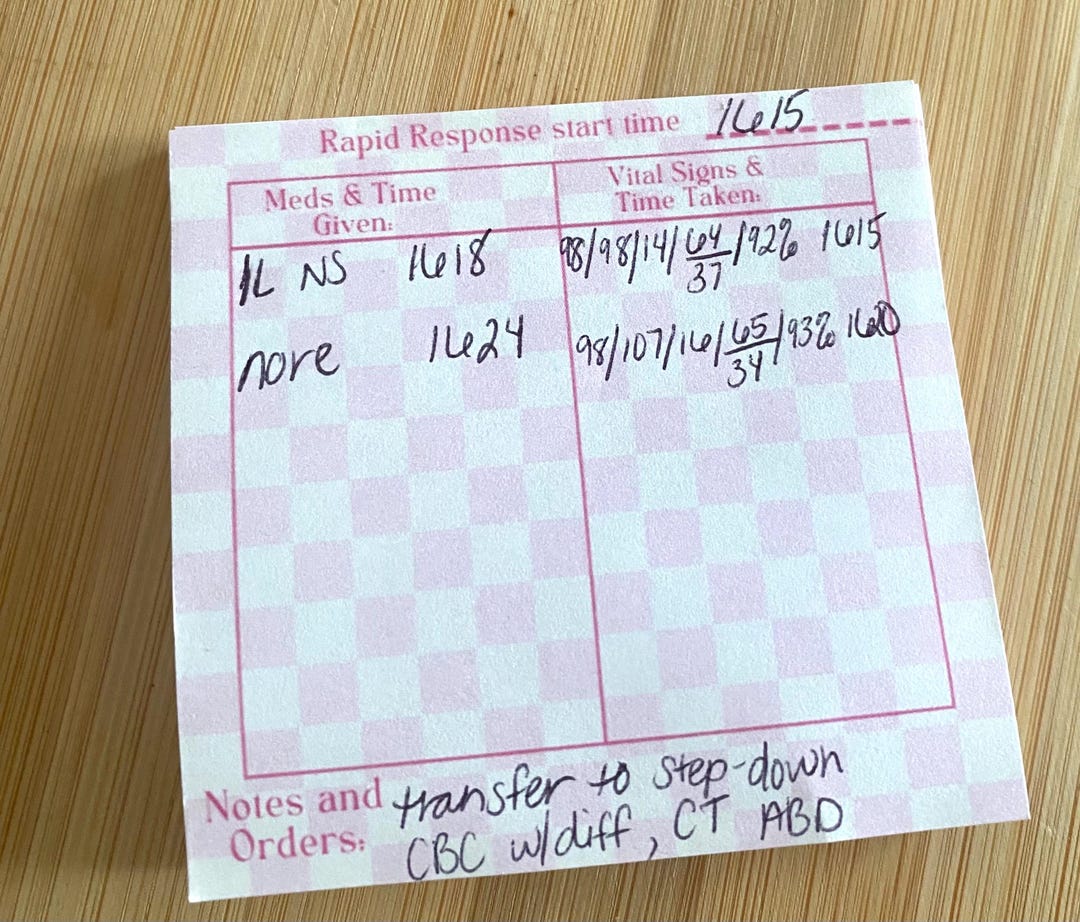 Rapid Response start time 1615
Meds & Time
Given:
Vital Signs &
Time Taken:
1L NS 1618
98/98/14/64/37/92% 1615
nore 1624
98/107/16/65/34/93% 1620
Notes and transfer to step-down
Orders: CBC w/diff, CT ABD